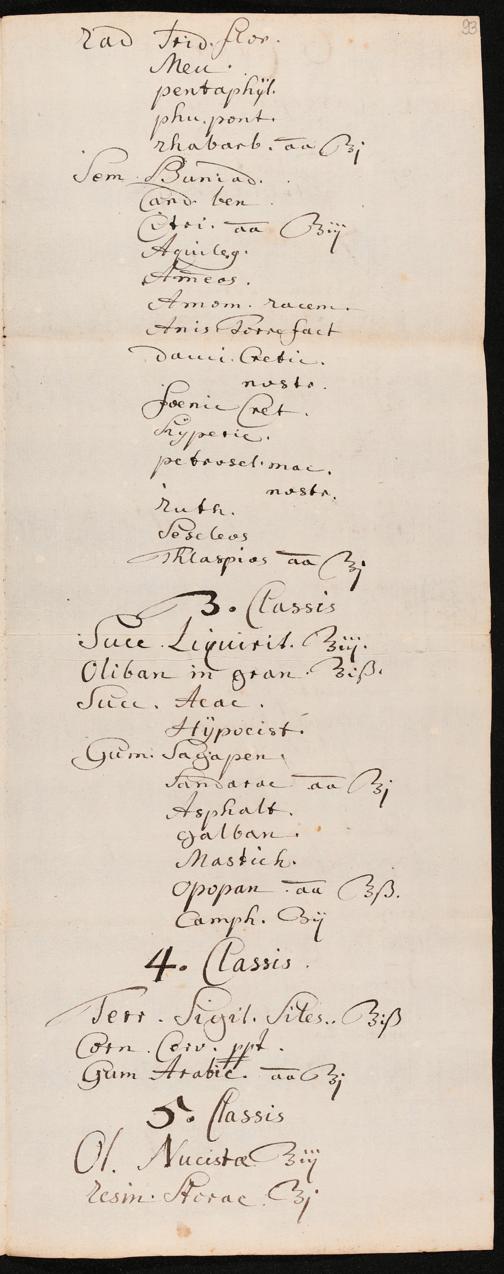 93
rad Irid. flor.
Meu.
pentaphÿl.
phu. pont.
rhabarb. aa ℥j
Sem. Buniad.
Card ben
Citri. aa ℥iij
Aquileg.
Ameos.
Amom. racem.
Anis Torrefact
dauci. Cretic.
nostr.
foenic Cret.
hÿperic.
petrosel. mac.
nostr.
ruth.
Seseleos
Thlaspios aa ℥j
3. Classis
Succ. Liquirit. ℥iij.
Oliban in gran. ℥iß.
Succ. Acac.
Hÿpocist.
Gum. Sagapen.
Sandarac aa ℥j
Asphalt.
galban.
Mastich.
opopan. aa ℥ß.
Camph. ℥ij
4. Classis.
Terr. Sigil. Siles. ℥iß
Corn. Cerv. ppt.
Gum Arabic. aa ℥j
5. Classis
Ol. Nucistæ ℥iij
resin. Storac. ℥j